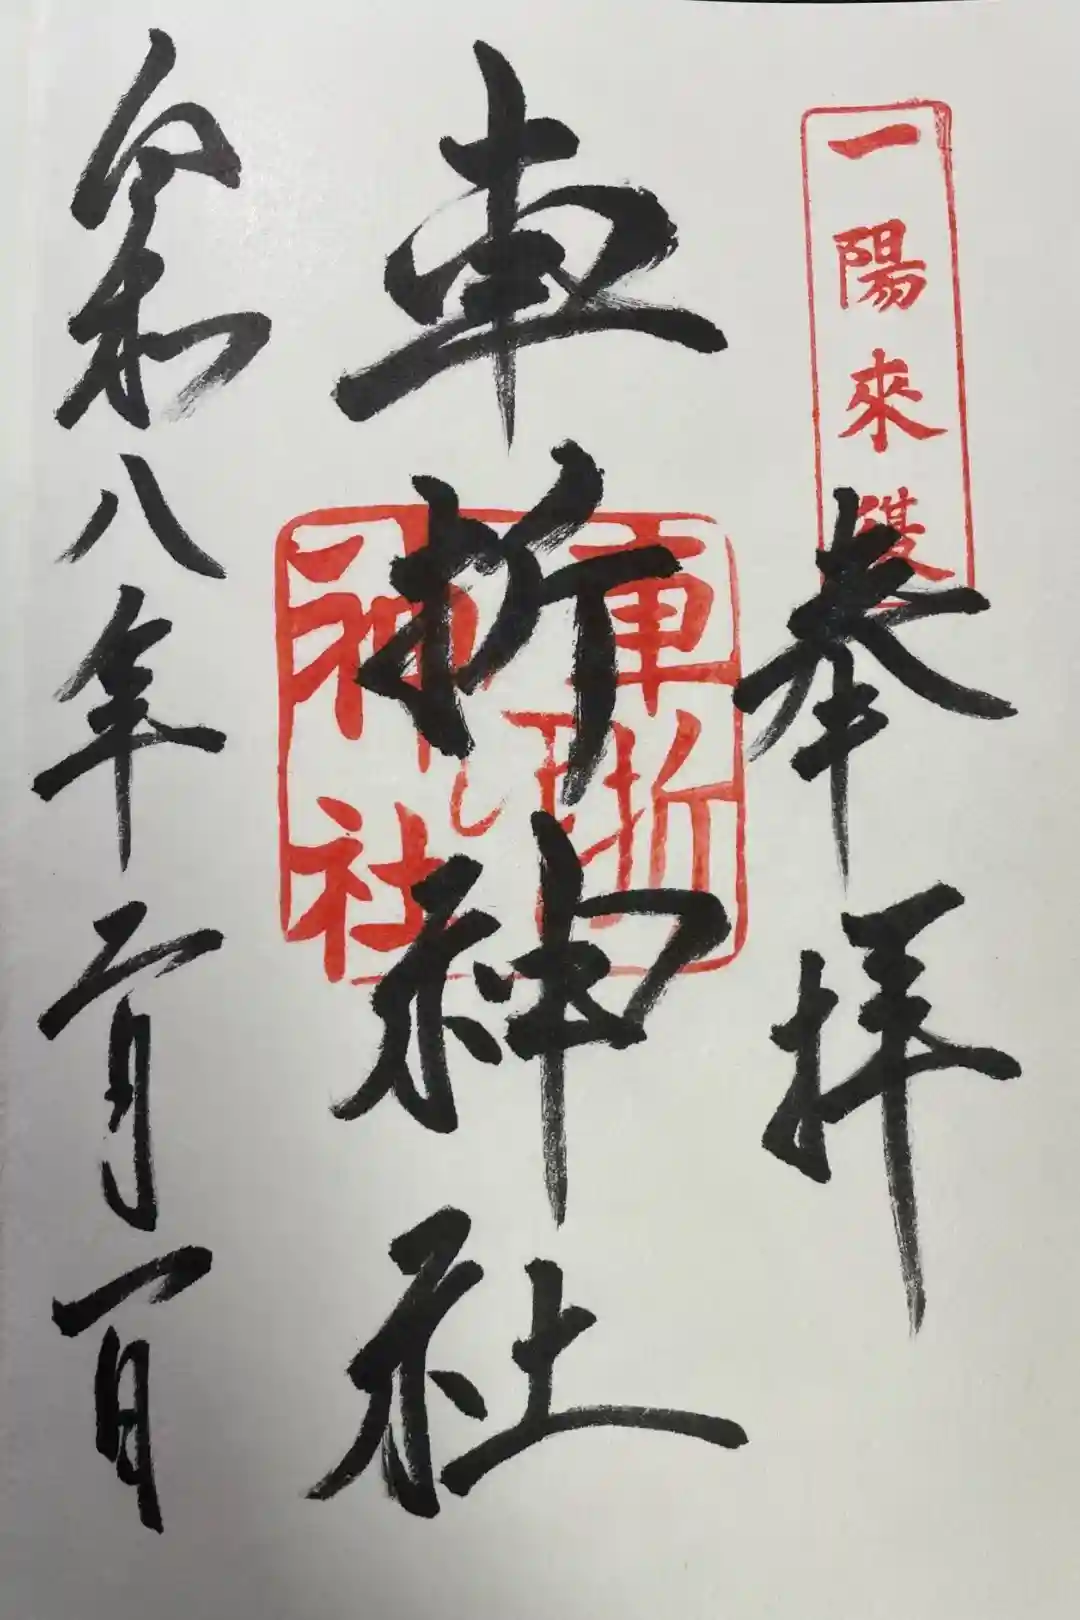 一陽来復
奉拝
車折神社
車折
神社
令和八年二月一日